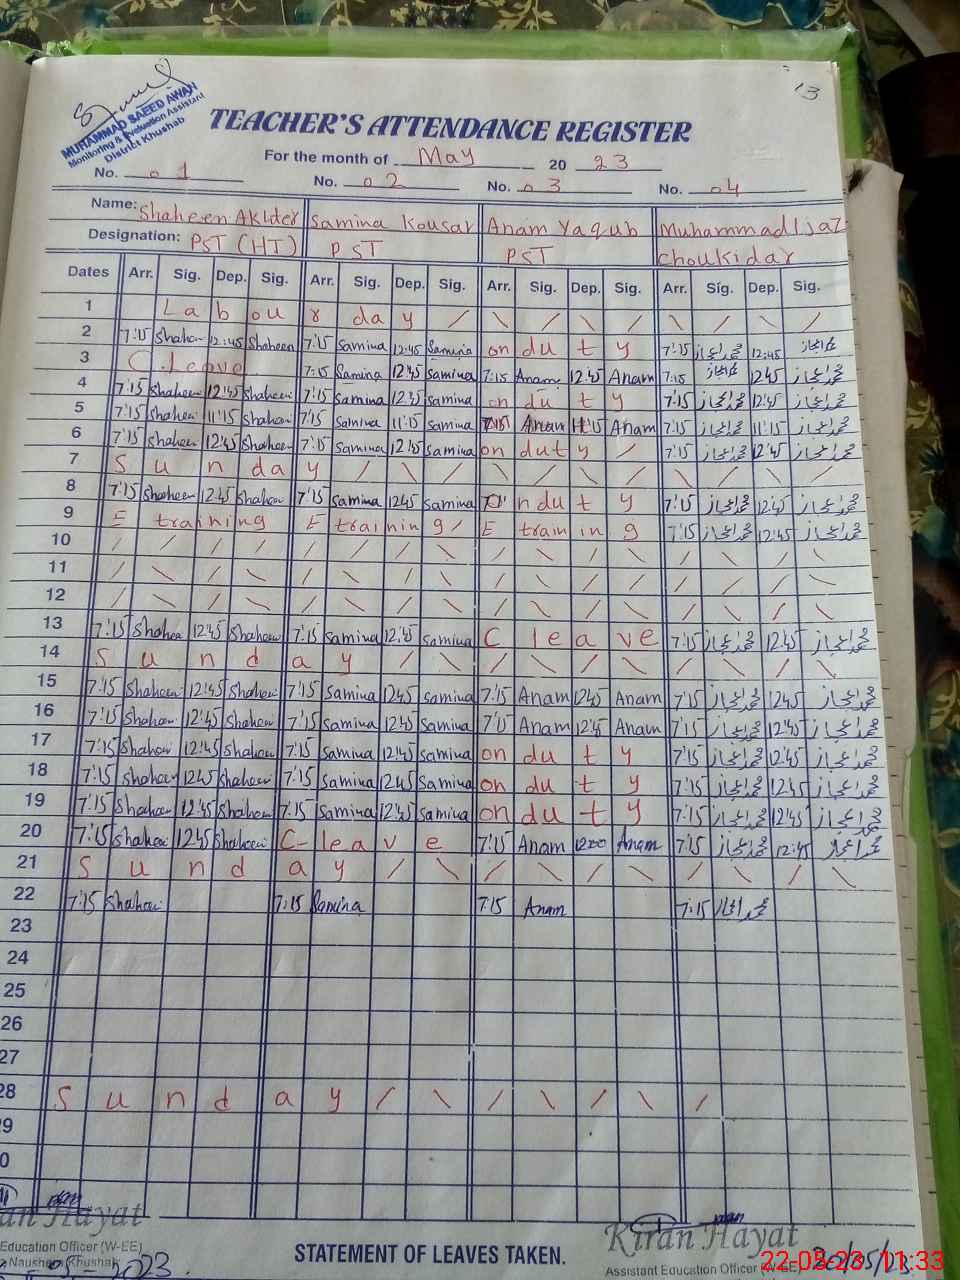 13
MUHAMMAD SAEED AWAN
Monitoring & Evaluation Assistant
District Khushab
TEACHER'S ATTENDANCE REGISTER
For the month of May 20 23
No. 01 No. 02 No. 03 No. 04
Name: Shaheen Akhter Samina Kousar Anam Yaqub Muhammad Ijaz
Designation: PST (HT) PST PST Choukidar
Dates Arr. Sig. Dep. Sig. Arr. Sig. Dep. Sig. Arr. Sig. Dep. Sig. Arr. Sig. Dep. Sig.
1 Labour day / \ / \ / \ / \ /
2 7:15 Shaheen 12:45 Shaheen 7:15 Samina 12:45 Samina on duty 7:15 محمد اعجاز 12:45 محمد اعجاز
3 C.leave 7:15 Samina 12:45 Samina 7:15 Anam 12:45 Anam 7:15 محمد اعجاز 12:45 محمد اعجاز
4 7:15 Shaheen 12:45 Shaheen 7:15 Samina 12:45 Samina on duty 7:15 محمد اعجاز 12:45 محمد اعجاز
5 7:15 Shaheen 11:15 Shaheen 7:15 Samina 11:15 Samina 7:15 Anam 11:15 Anam 7:15 محمد اعجاز 11:15 محمد اعجاز
6 7:15 Shaheen 12:45 Shaheen 7:15 Samina 12:45 Samina on duty / 7:15 محمد اعجاز 12:45 محمد اعجاز
7 Sunday / \ / \ / \ / \ / \ /
8 7:15 Shaheen 12:45 Shaheen 7:15 Samina 12:45 Samina on duty 7:15 محمد اعجاز 12:45 محمد اعجاز
9 E training E training / E training 7:15 محمد اعجاز 12:45 محمد اعجاز
10 / / / / / / / \ / / / \ / \ / \
11 / \ / \ / \ / \ / \ / / / / / \
12 / \ / \ / \ / \ / \ / \ / \ / \
13 7:15 Shaheen 12:45 Shaheen 7:15 Samina 12:45 Samina C leave 7:15 محمد اعجاز 12:45 محمد اعجاز
14 Sunday / \ / \ / \ / \ / \
15 7:15 Shaheen 12:45 Shaheen 7:15 Samina 12:45 Samina 7:15 Anam 12:45 Anam 7:15 محمد اعجاز 12:45 محمد اعجاز
16 7:15 Shaheen 12:45 Shaheen 7:15 Samina 12:45 Samina 7:15 Anam 12:45 Anam 7:15 محمد اعجاز 12:45 محمد اعجاز
17 7:15 Shaheen 12:45 Shaheen 7:15 Samina 12:45 Samina on duty 7:15 محمد اعجاز 12:45 محمد اعجاز
18 7:15 Shaheen 12:45 Shaheen 7:15 Samina 12:45 Samina on duty 7:15 محمد اعجاز 12:45 محمد اعجاز
19 7:15 Shaheen 12:45 Shaheen 7:15 Samina 12:45 Samina on duty 7:15 محمد اعجاز 12:45 محمد اعجاز
20 7:15 Shaheen 12:45 Shaheen C-leave 7:15 Anam 12:00 Anam 7:15 محمد اعجاز 12:45 محمد اعجاز
21 Sunday / \ / \ / \ / \ / \
22 7:15 Shaheen 7:15 Samina 7:15 Anam 7:15 محمد اعجاز
23
24
25
26
27
28 Sunday / \ / \ / \ /
9
0
an Hayat Kiran Hayat
Education Officer (W-EE)
Naushera Khushab
2023
STATEMENT OF LEAVES TAKEN.
Assistant Education Officer (W-EE)
22-05-23 11:33